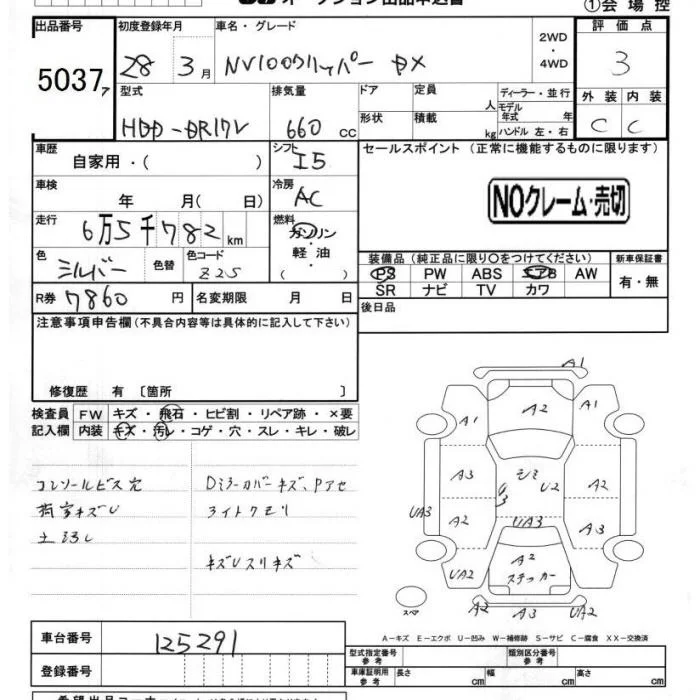 オークション出品申込書
①会場控
出品番号 初度登録年月 車名・グレード 評価点
5037ァ 28 3月 NV100クリッパー DX 2WD・4WD 3
型式 排気量 ドア 定員 人 ディーラー・並行 外装 内装
HBD-DR17V 660 cc 形状 積載 kg モデル年式 年 ハンドル 左・右 C C
車歴 シフト セールスポイント(正常に機能するものに限ります)
自家用・( ) I5
車検 冷房
年 月( 日) AC NOクレーム・売切
走行 燃料
6万5千782km ガソリン・軽油・( )
装備品(純正品に限り○をつけてください) 新車保証書
色 色替 色コード
シルバー Z2S
PS PW ABS エアB AW 有・無
SR ナビ TV カワ
R券 7860円 名変期限 月 日 後日品
注意事項申告欄(不具合内容等は具体的に記入して下さい)
修復歴 有〔箇所 〕
検査員 FW キズ・飛石・ヒビ割・リペア跡・×要
記入欄 内装 キズ・汚レ・コゲ・穴・スレ・キレ・破レ
コンソールビス穴 Dミラーカバーキズ、Pアセ
荷室キズU ライトクモリ
土汚レ
キズUスリキズ
A1
A1 A2 A1
A3 シミ U2 A2
UA3 A2 UA3 A3
UA2 A2 ステッカー
スペア A2 A3 UA2
A-キズ E-エクボ U-凹み W-補修跡 S-サビ C-腐食 XX-交換済
車台番号 125291
型式指定番号 参考 類別区分番号 参考
登録番号
車庫証明用 参考 長さ cm 幅 cm 高さ cm